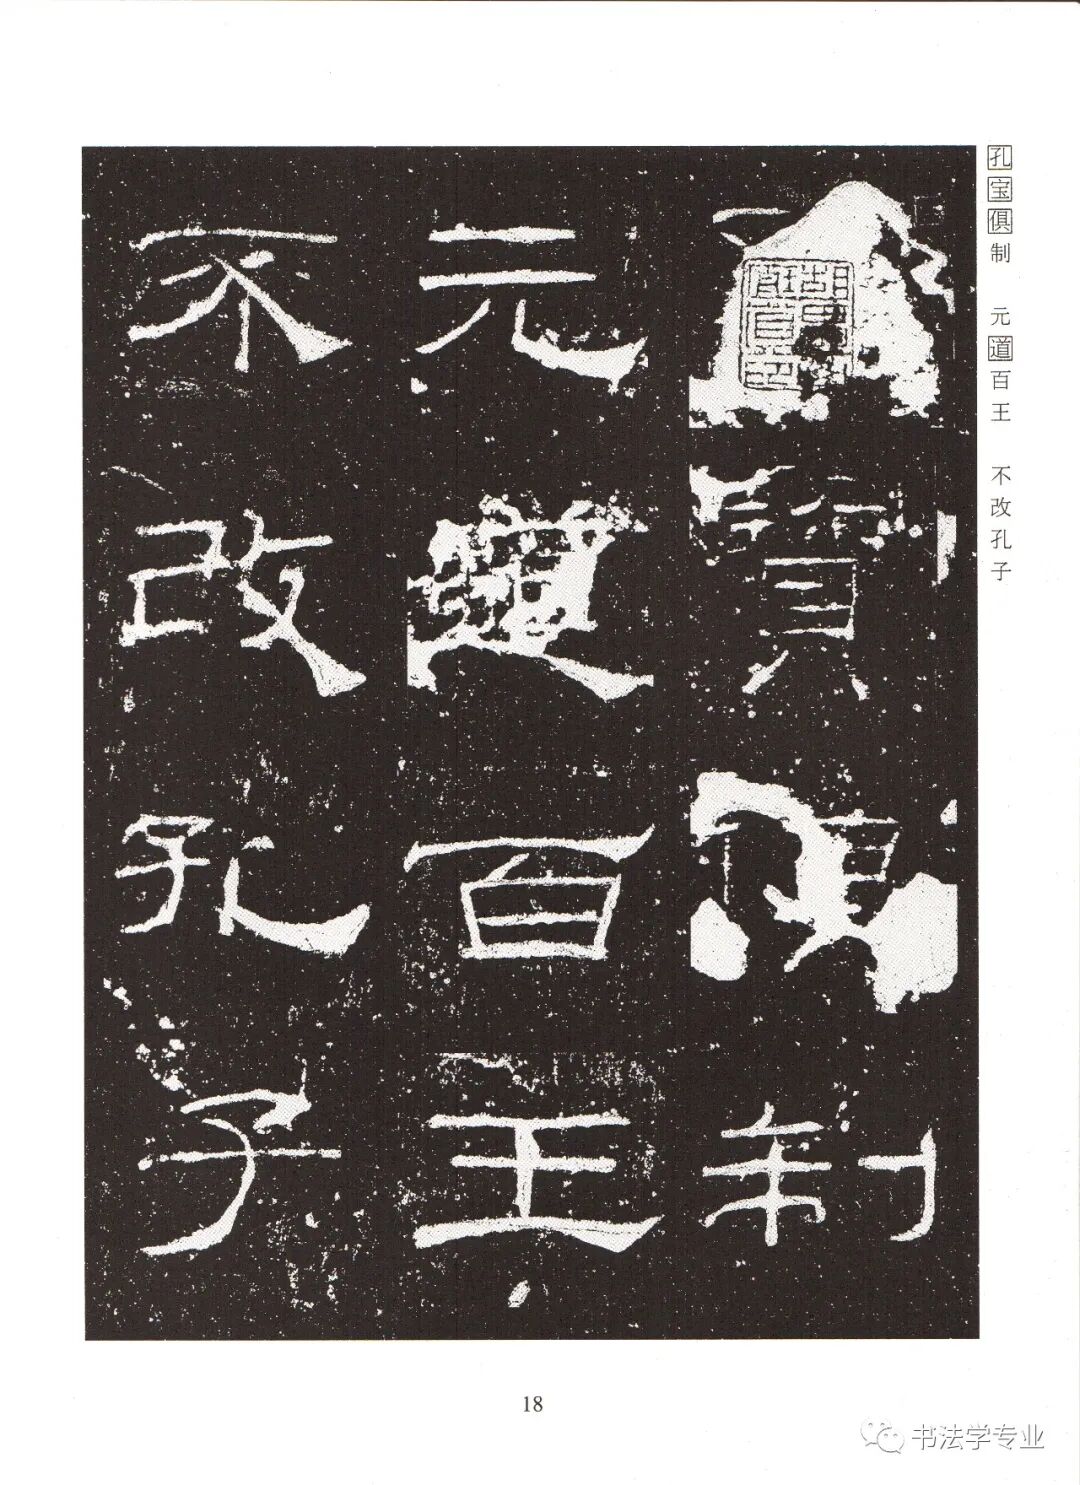 寶俱制
元道百王
不改孔子
孔宝俱制 元道百王 不改孔子
18
书法学专业